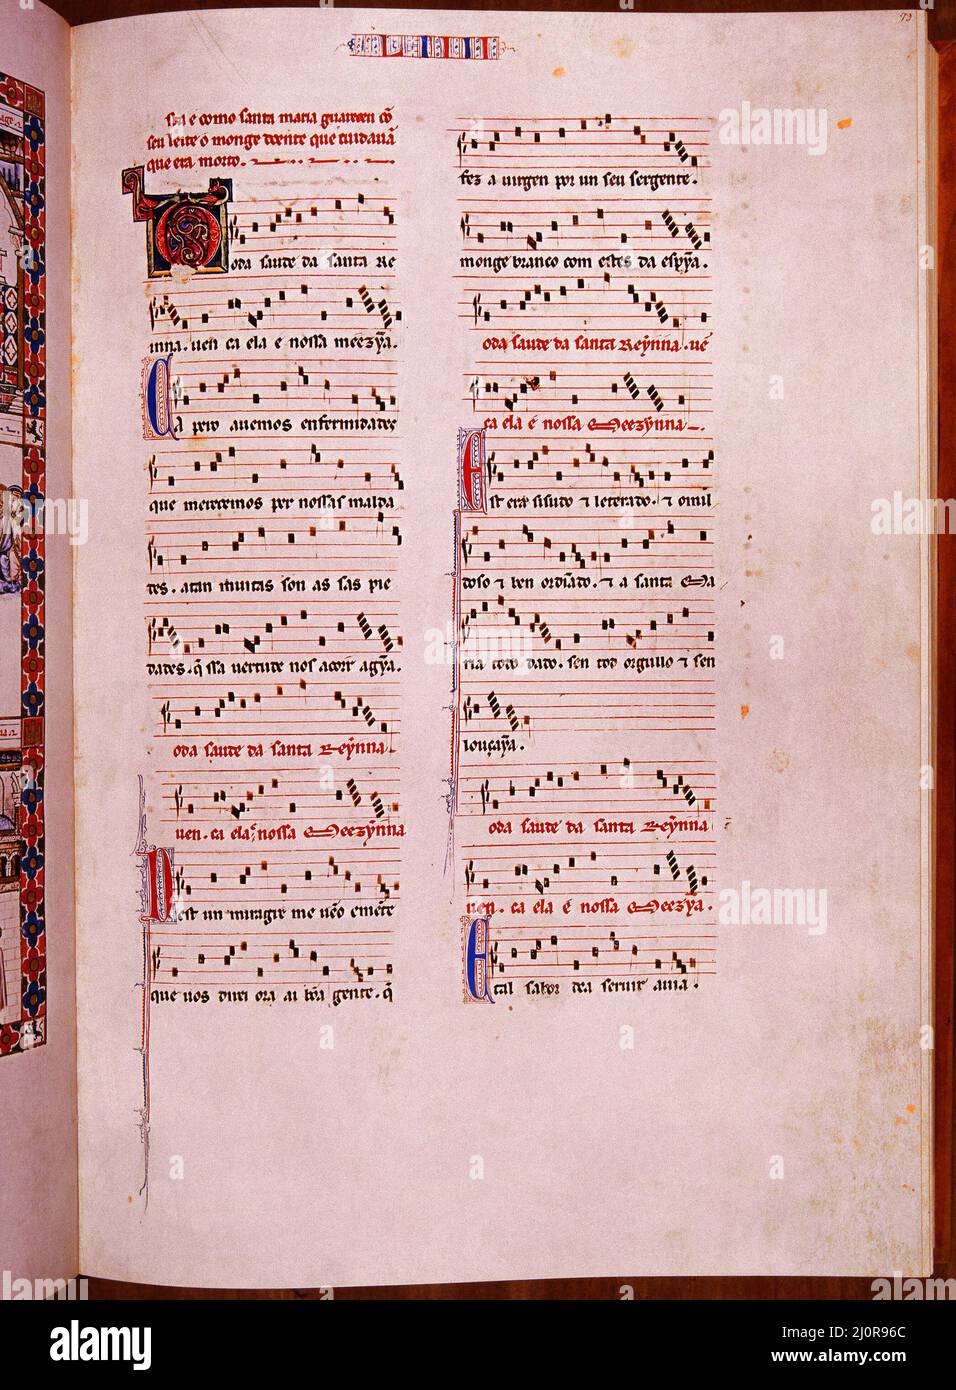 73
sta é como santa maria guareceu cõ
seu leite o monge doente que cuidavã
que era morto.
Toda saude da santa Re
inna. uen ca ela é nossa meezỹa.
Ca pero avemos enfermidades
que merecemos per nossas malda
des. atan muitas son as sas pie
dades. q̃ ssa vertude nos acorr agỹa.
oda saude da santa Reỹnna
uen. ca ela é nossa Meezỹnna
Dest un miragre me vẽo emẽte
que vos direi ora ai bõa gente. q̃
fez a virgen por un seu sergente.
monge branco com estes da espỹa.
oda saude da santa Reỹnna. uẽ
ca ela é nossa Meezỹnna
Est era sisudo & leterado. & omil
doso & ben ordĩado. & a santa Ma
ria todo dado. sen tod orgullo & sen
louçaỹa.
oda saude da santa Reỹnna
uen. ca ela é nossa Meezỹa.
E tal sabor de a servir avia.
alamy
alamy
Image ID: 2J0R96C
www.alamy.com